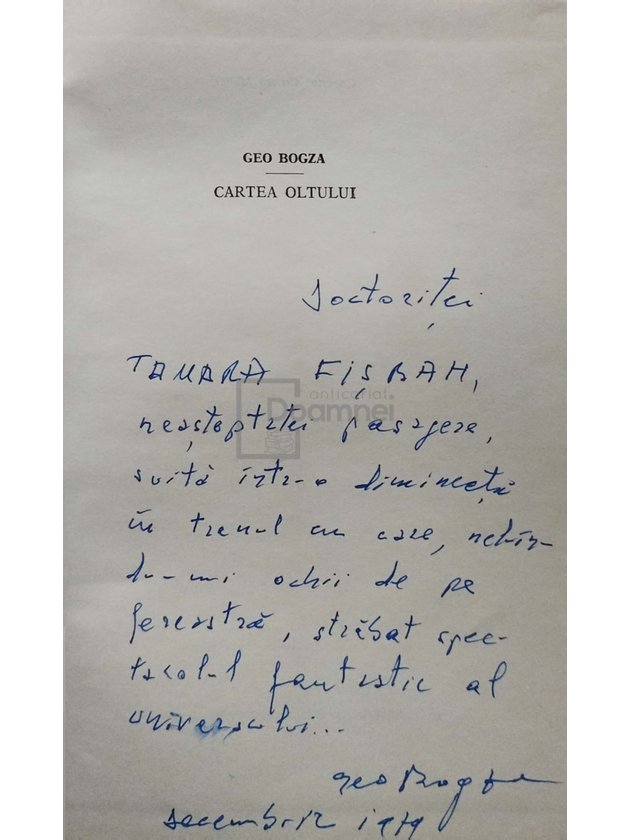 GEO BOGZA
CARTEA OLTULUI
Doctoriței
TAMARA FIȘBAH,
anticariat
Doamnei
neașteptatei pasagere,
suită într-o dimineață
în trenul cu care, neluîn-
du-mi ochii de pe
fereastră, străbat spec-
tacolul fantastic al
universului...
Geo Bogza
decembrie 1979